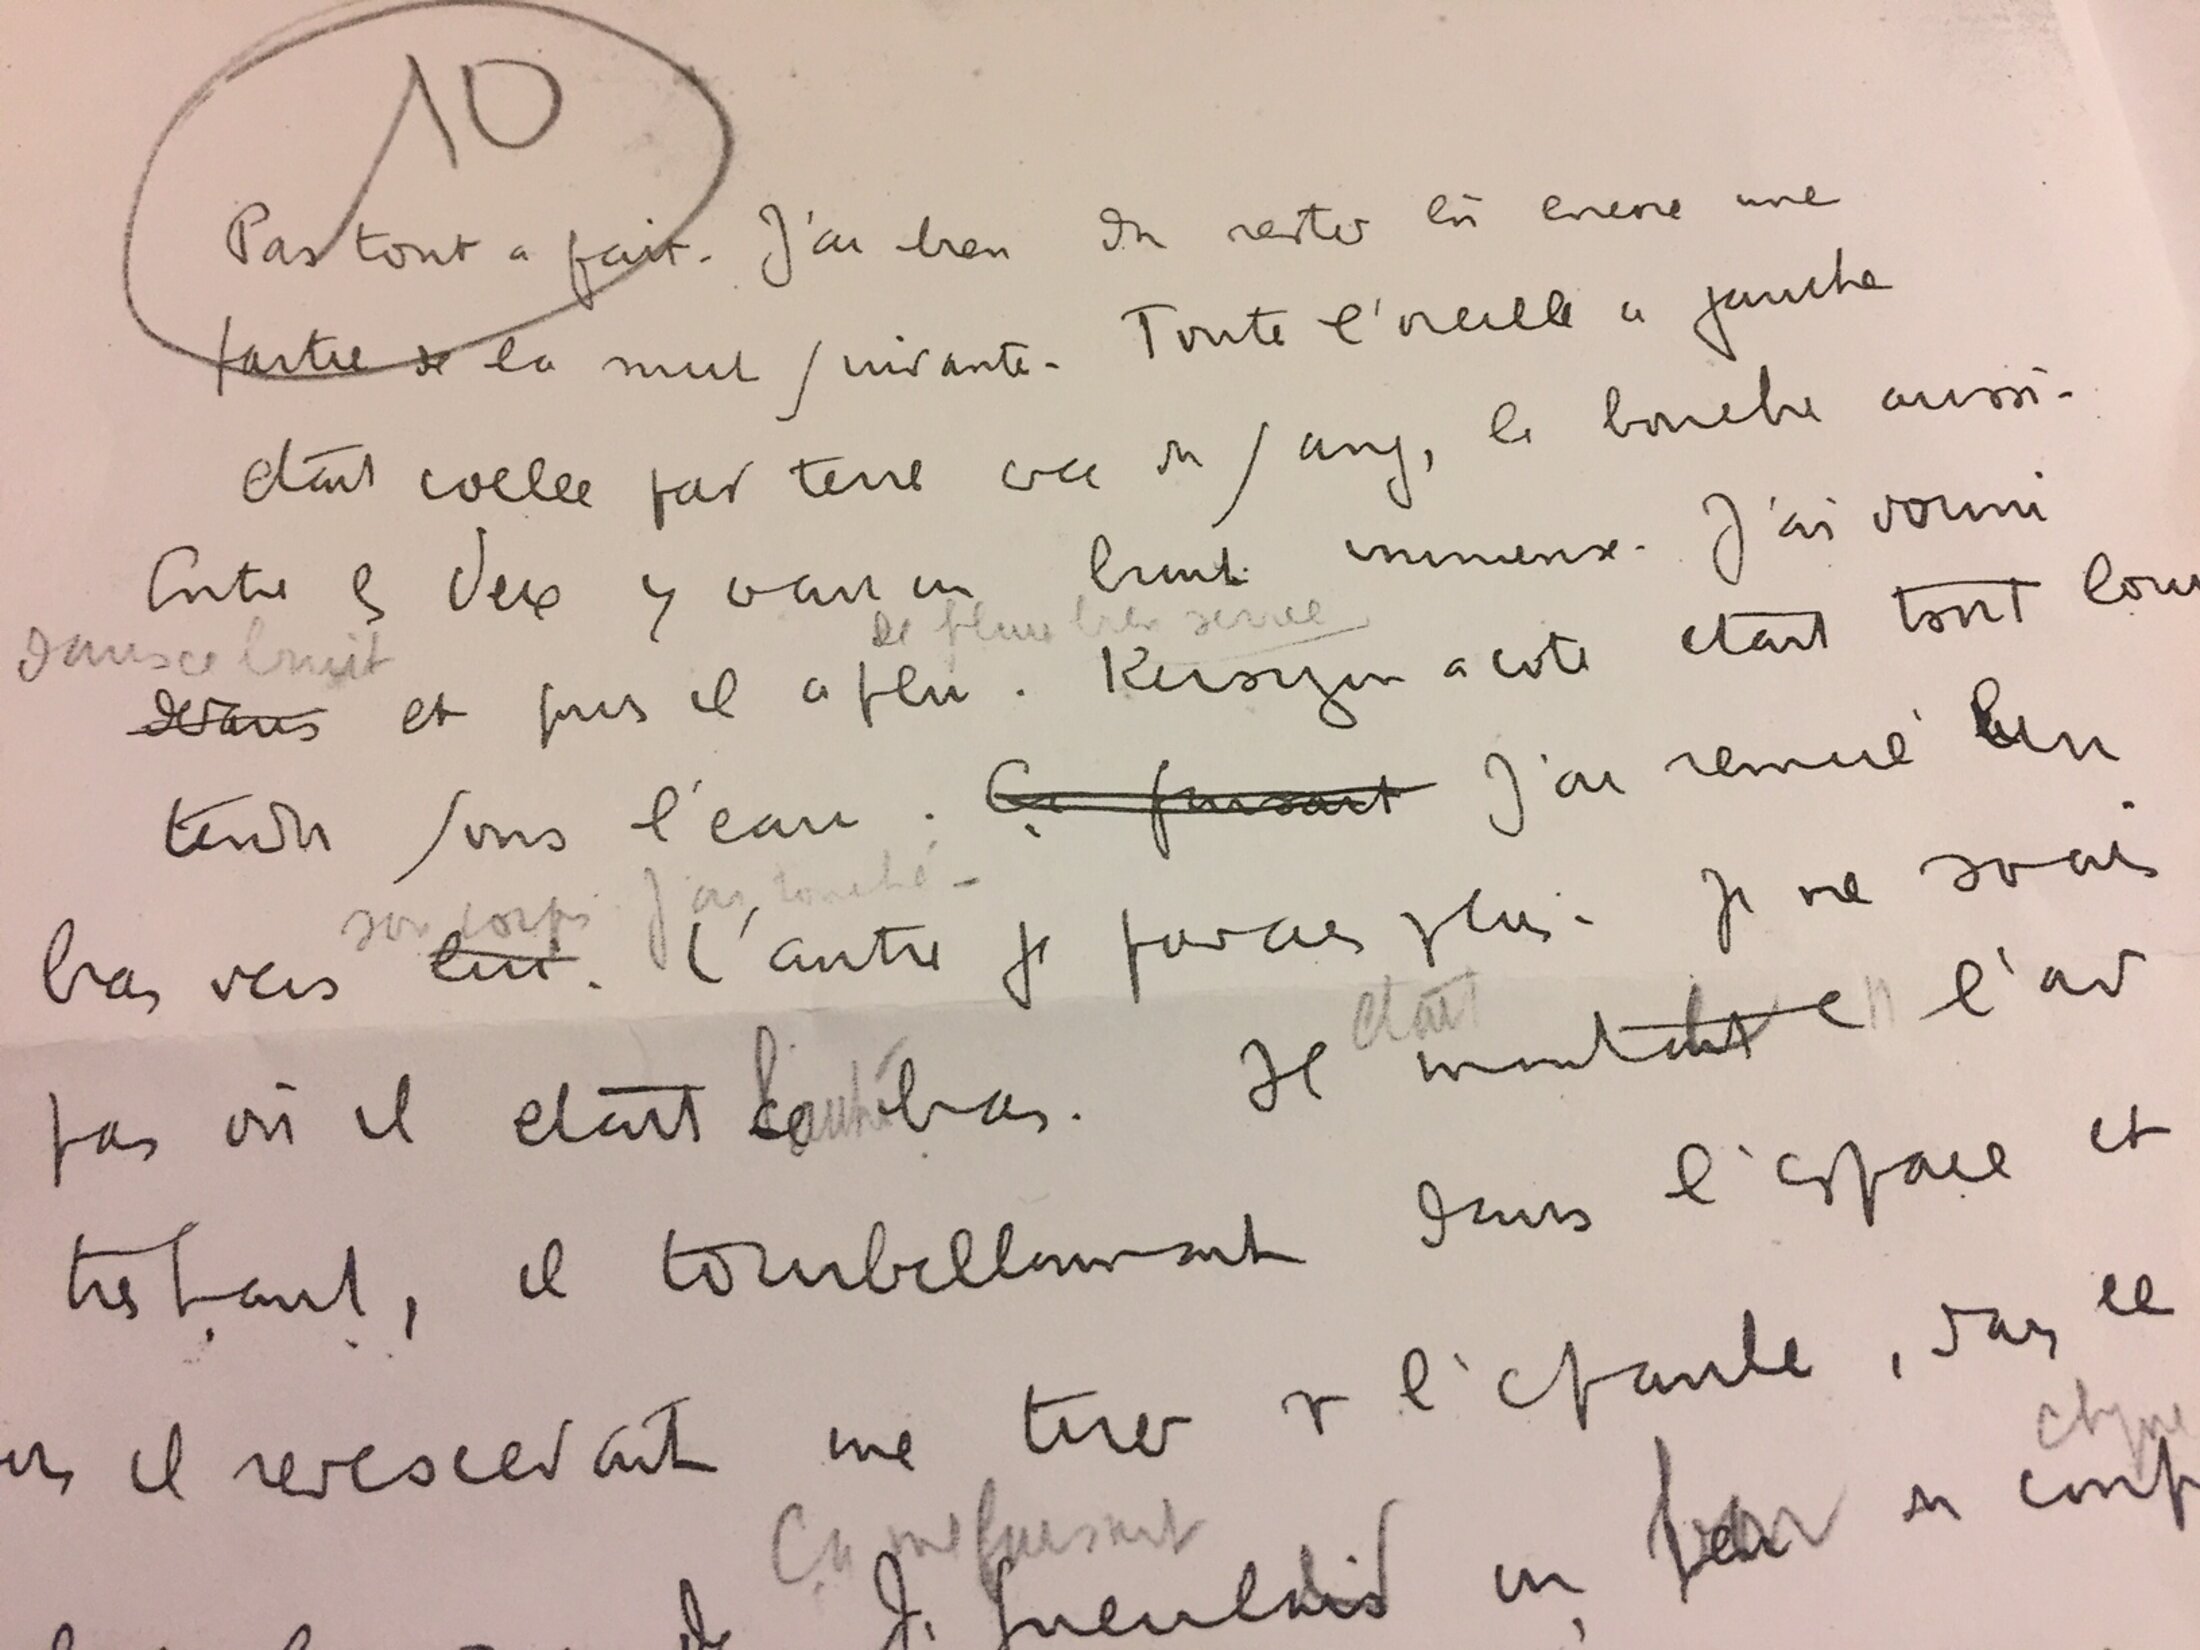 10
Pas tout a fait. J'ai bien du rester là encore une
partie de la nuit suivante. Toute l'oreille a gauche
etait collee par terre avec du sang, la bouche aussi.
Entre les deux y avait un bruit immense. J'ai dormi
dans ce bruit de pluie bien serrée
devans et puis il a plu. Kersuzon a coté etait tout lour
tendu sous l'eau. Ca faisait J'ai remué un
son corps. J'ai touché.
bras vers lui. L'autre je pouvais plus. Je ne savais
pas où il etait l'autre bras. Il etait montait en l'air
tres haut, il tourbillonnait dans l'espace et
il redescendait me tirer sur l'epaule, dans le
Ca me faisait
gueuler un